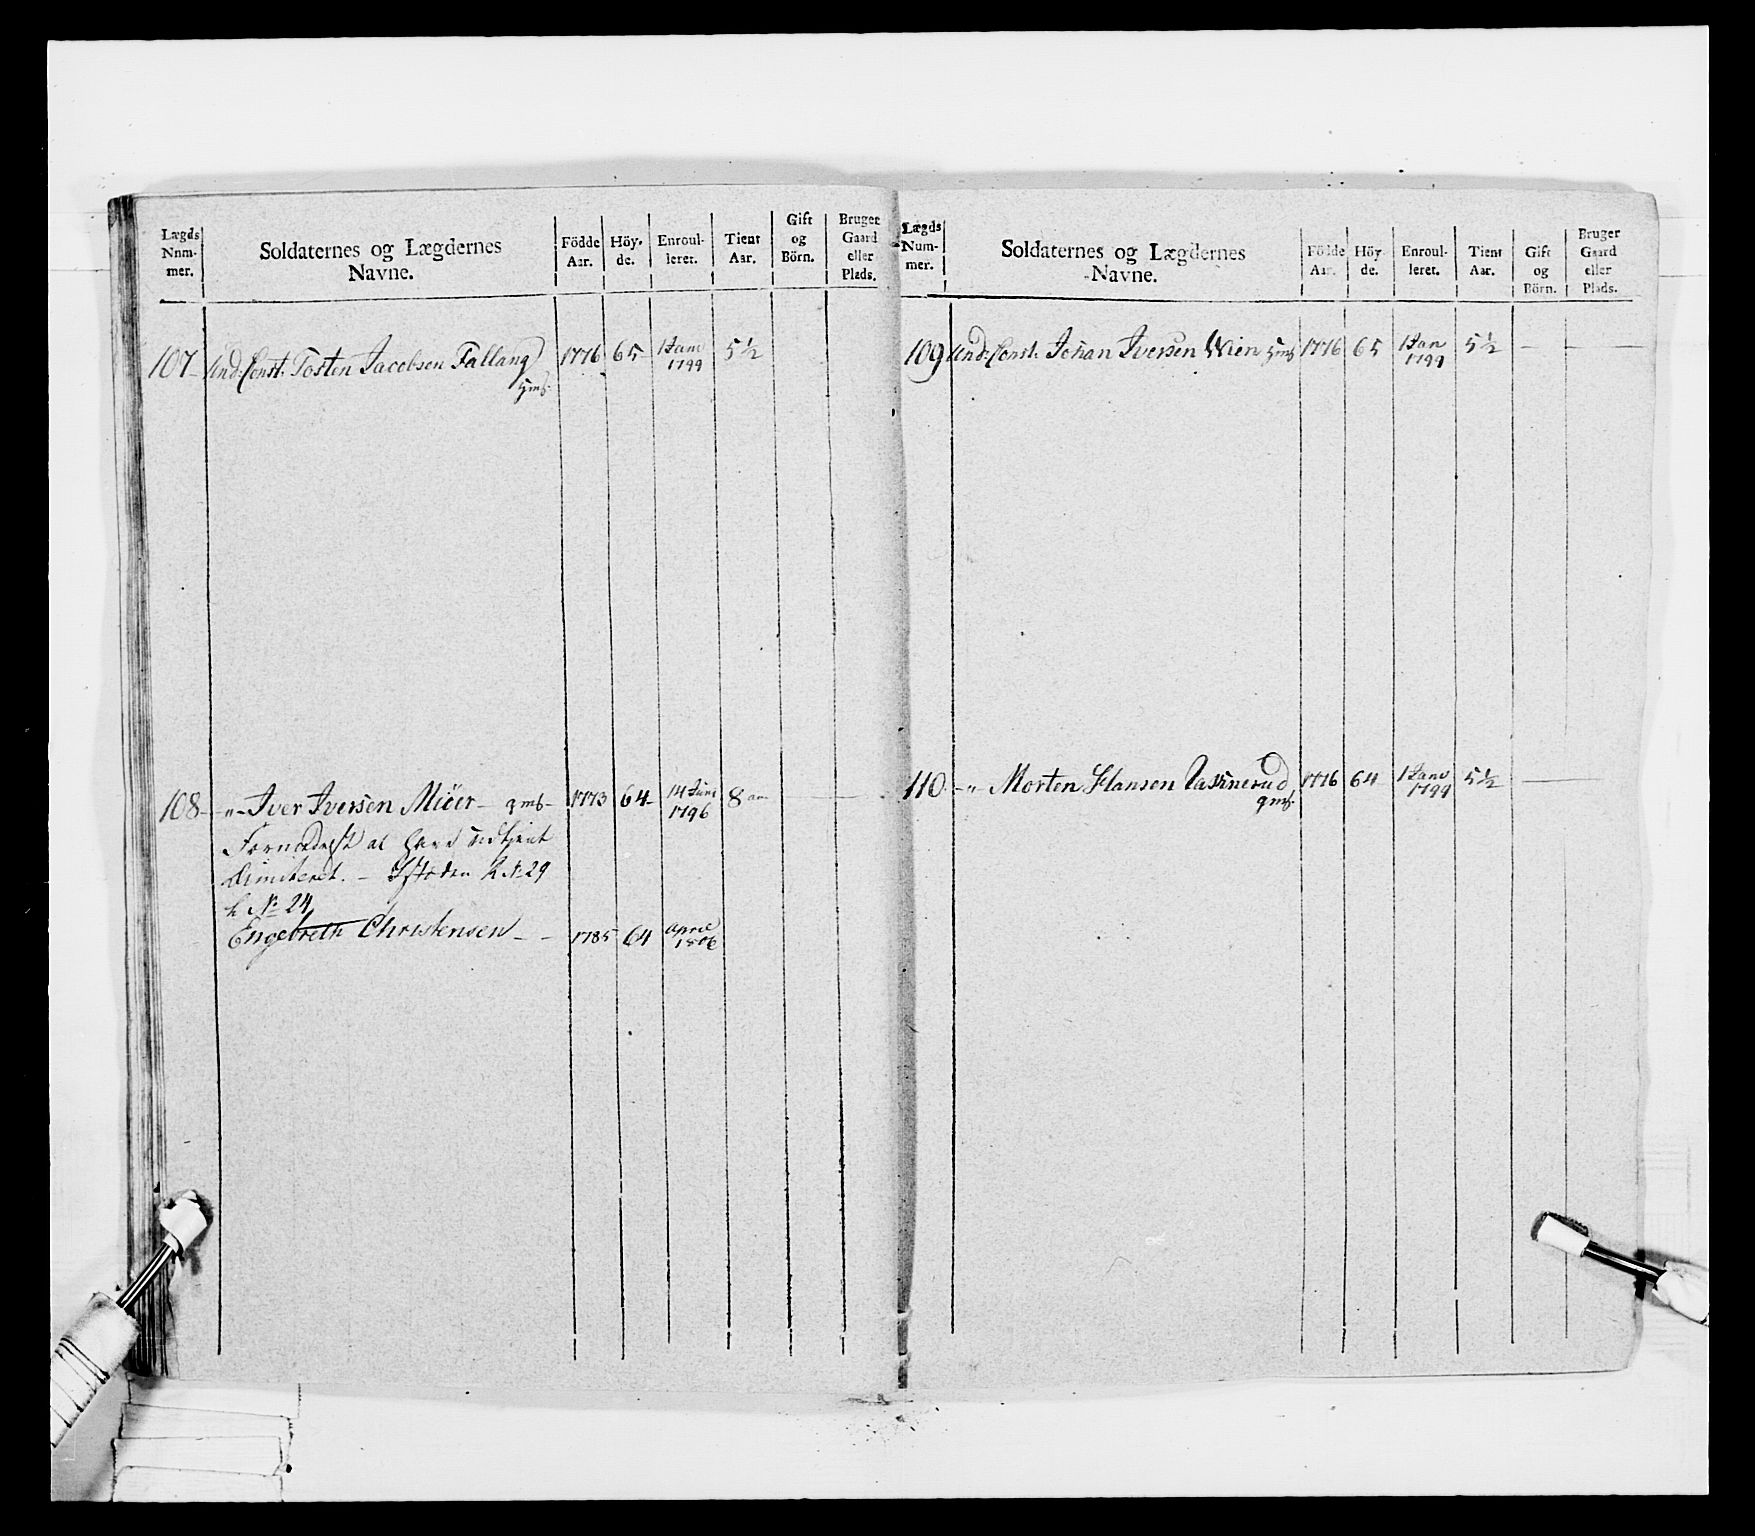 Lægds Nnm- mer.
Soldaternes og Lægdernes Navne.
Födde Aar.
Höy- de.
Enroul- leret.
Tient Aar.
Gift og Börn.
Bruger Gaard eller Plads.
107 Und: Const: Tosten Jacobsen Fallang 1776 65 1 Janv 1799 5 1/2
108 - „ - Iver Iversen Miöer - gms - 1773 64 - 14 Juni 1796 8
at have
dimiteret. - N: 29
N: 24
Engebreth Christensen - - 1785 64 April 1806
Lægds Num- mer.
Soldaternes og Lægdernes Navne.
Födde Aar.
Höy- de.
Enroul- leret.
Tient Aar.
Gift og Börn.
Bruger Gaard eller Plads.
109 Und: Const: Johan Iversen Wien 1776 65 1 Jan 1799 5 1/2 —
110 - „ Morten Hansen 1776 64 1 Janv 1799 5 1/2 —
gms.